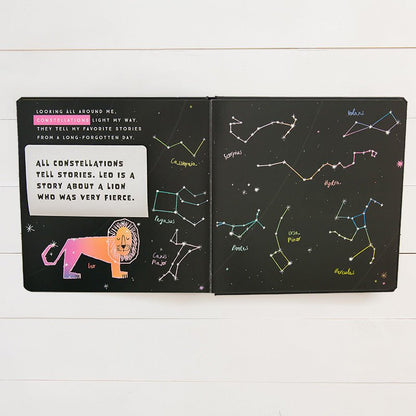 LOOKING ALL AROUND ME,
CONSTELLATIONS LIGHT MY WAY.
THEY TELL MY FAVORITE STORIES
FROM A LONG-FORGOTTEN DAY.
ALL CONSTELLATIONS
TELL STORIES. LEO IS A
STORY ABOUT A LION
WHO WAS VERY FIERCE.
Leo
Cassiopeia
Pegasus
Canis
Major
Scorpius
Hydra
Aries
Ursa
Minor
Hercules